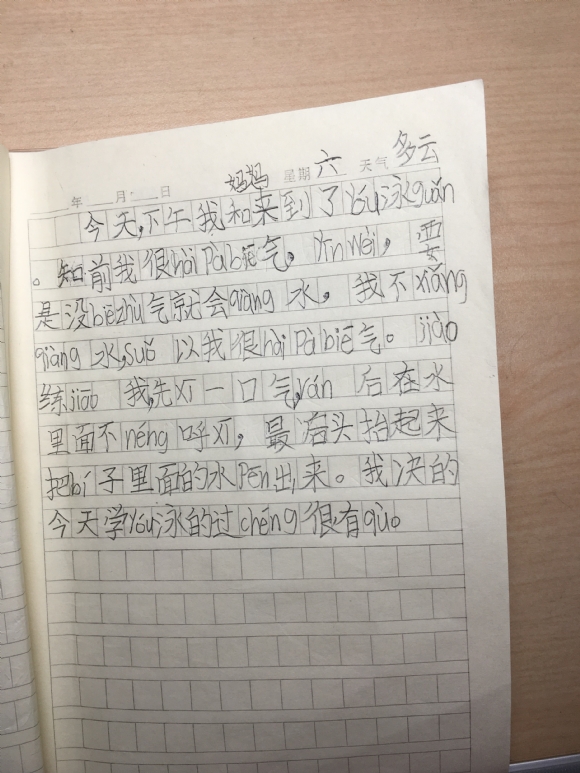 年 月 日 妈妈 星期 六 天气 多云
今天,下午我和来到了yóu泳guǎn
。知前我很hàipàbiē气。yīnwèi,要
是没biēzhù气就会qiāng水。我不xiǎng
qiāng水,suǒ以我很hàipàbiē气。jiào
练jiāo我,先xī一口气,rán后在水
里面不néng呼xī,最后头抬起来
把bí子里面的水pēn出来。我决的
今天学yóu泳的过chéng很有qùo